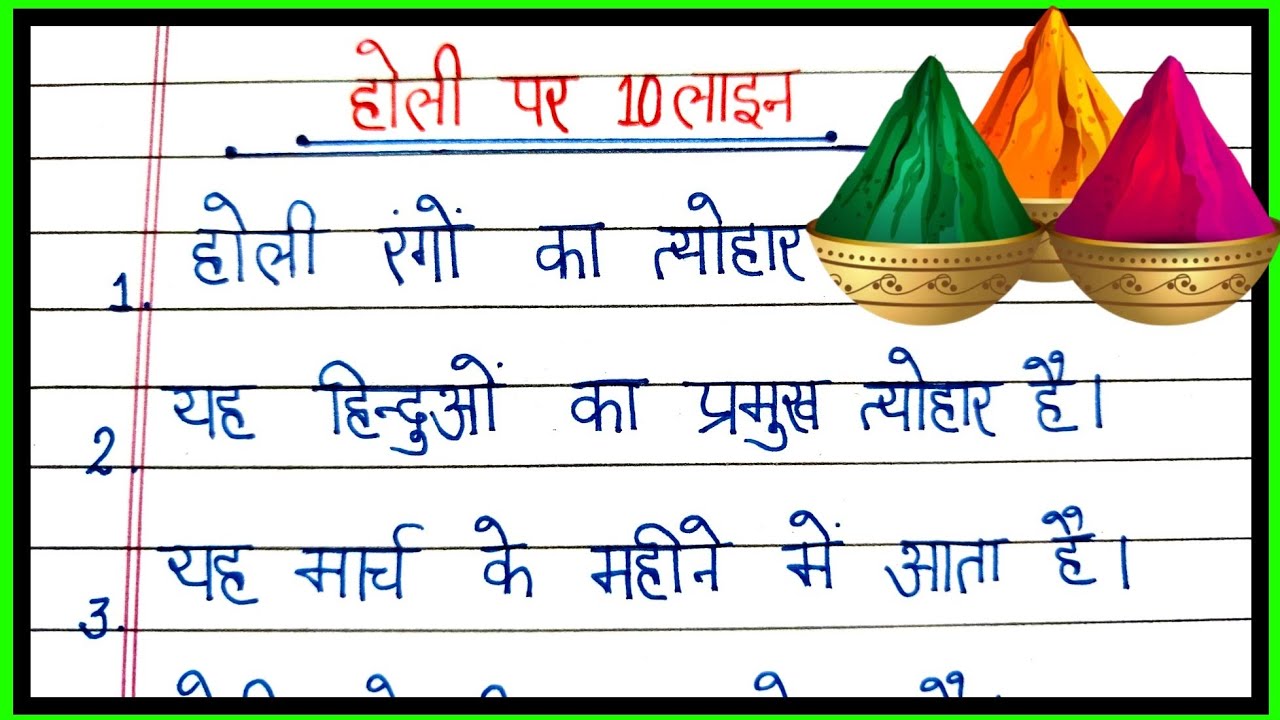 होली पर 10 लाइन
1. होली रंगों का त्योहार
2. यह हिन्दुओं का प्रमुख त्योहार है।
3. यह मार्च के महीने में आता है।